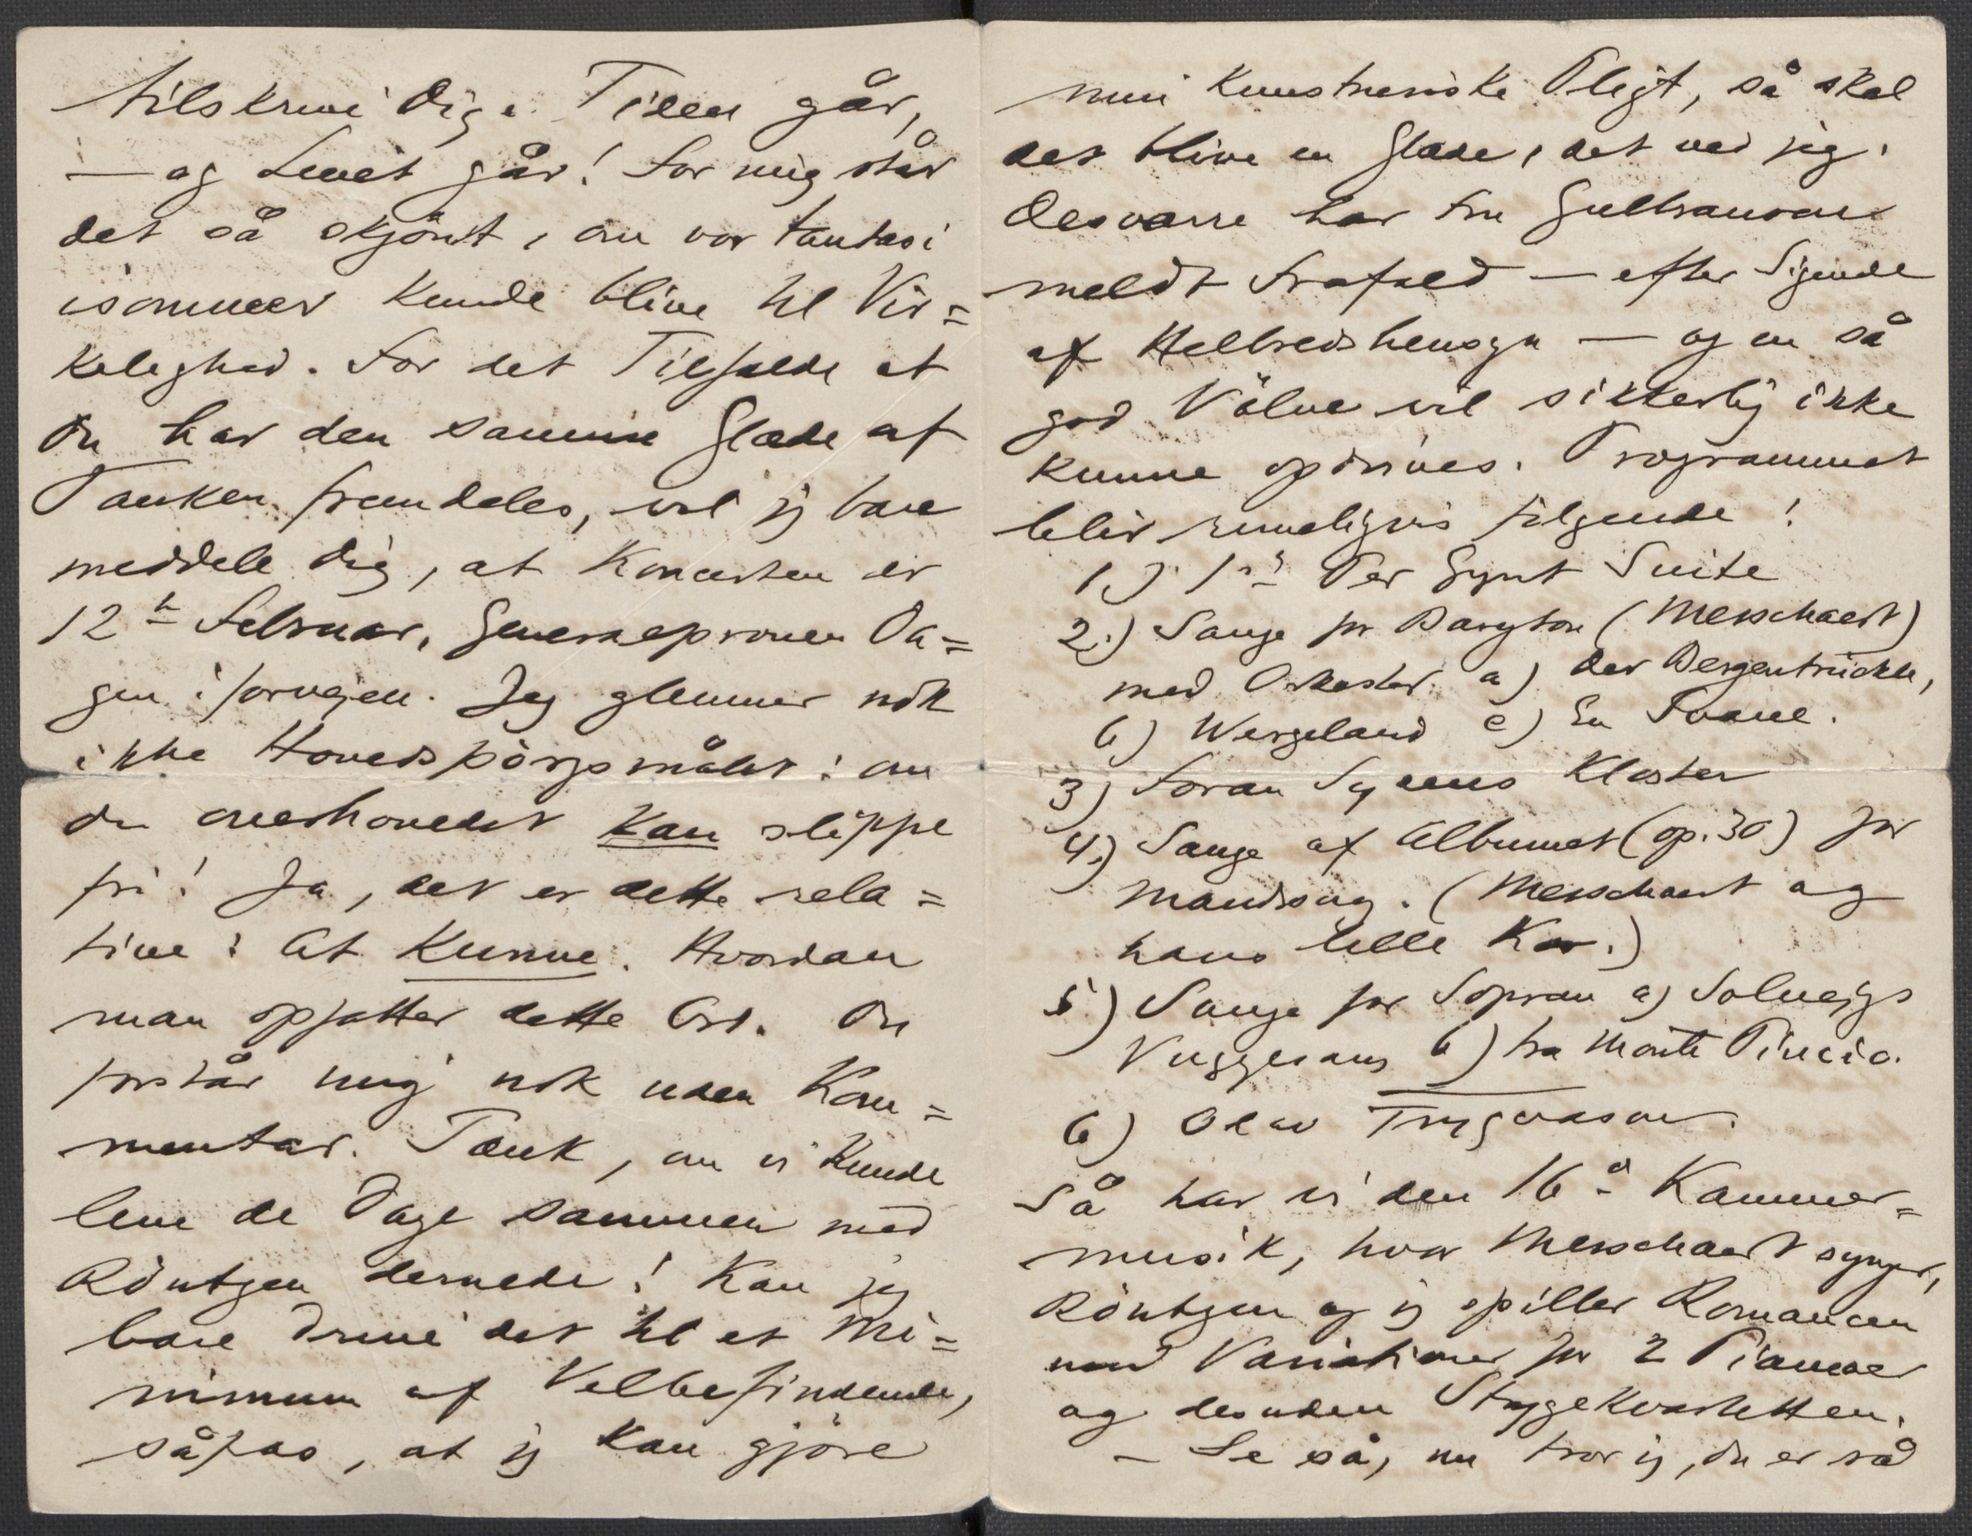 tilskrive Dig. Tiden går,
— og Livet går! For mig står
det så skjönt, om vor Fantasi
isommer kunde blive til Vir=
kelighed. For det Tilfælde at
Du har den samme Glæde af
Tanken fremdeles, vil jeg bare
meddele Dig, at Koncerten er
12te Februar, Generalprøven Da=
gen iforvejen. Jeg glemmer nok
ikke Hovedspörgsmålet: om
Du overhovedet kan slippe
fri! Ja, det er dette rela=
tive: At kunne. Hvordan
man opfatter dette Ord. Du
forstår mig nok uden Kom=
mentar. Tænk, om vi kunde
leve de Dage sammen med
Röntgen dernede! Kan jeg
bare drive det til et Mi=
nimum af Velbefindende,
såpas, at jeg kan gjöre
min kunstneriske Pligt, så skal
det blive en Glæde, det ved jeg.
Desværre har Fru Gulbranson
meldt Frafald — efter Sigende
af Helbredshensyn — og en så
god Völve vil sikkerlig ikke
kunne opdrives. Programmet
blir rimeligvis fölgende:
1.) 1ste Per Gynt Suite
2.) Sange for Baryton (Messchaert)
med Orkester. a) Der Bergentrückte,
b) Wergeland c) En Svane.
3) Foran Sydens Kloster
4.) Sange af Albumet (op. 30) for
Mandssang. (Messchaert og
hans lille Kor.)
5) Sange for Sopran a) Solvejgs
Vuggesang b) Fra Monte Pincio.
6) Olav Trygvason.
Så har vi den 16de Kammer=
musik, hvor Messchaert synger,
Röntgen og jeg spiller Romancen
med Variationer for 2 Pianoer
og desuden Strygekvartetten.
— Se så, nu tror jeg, Du er såd